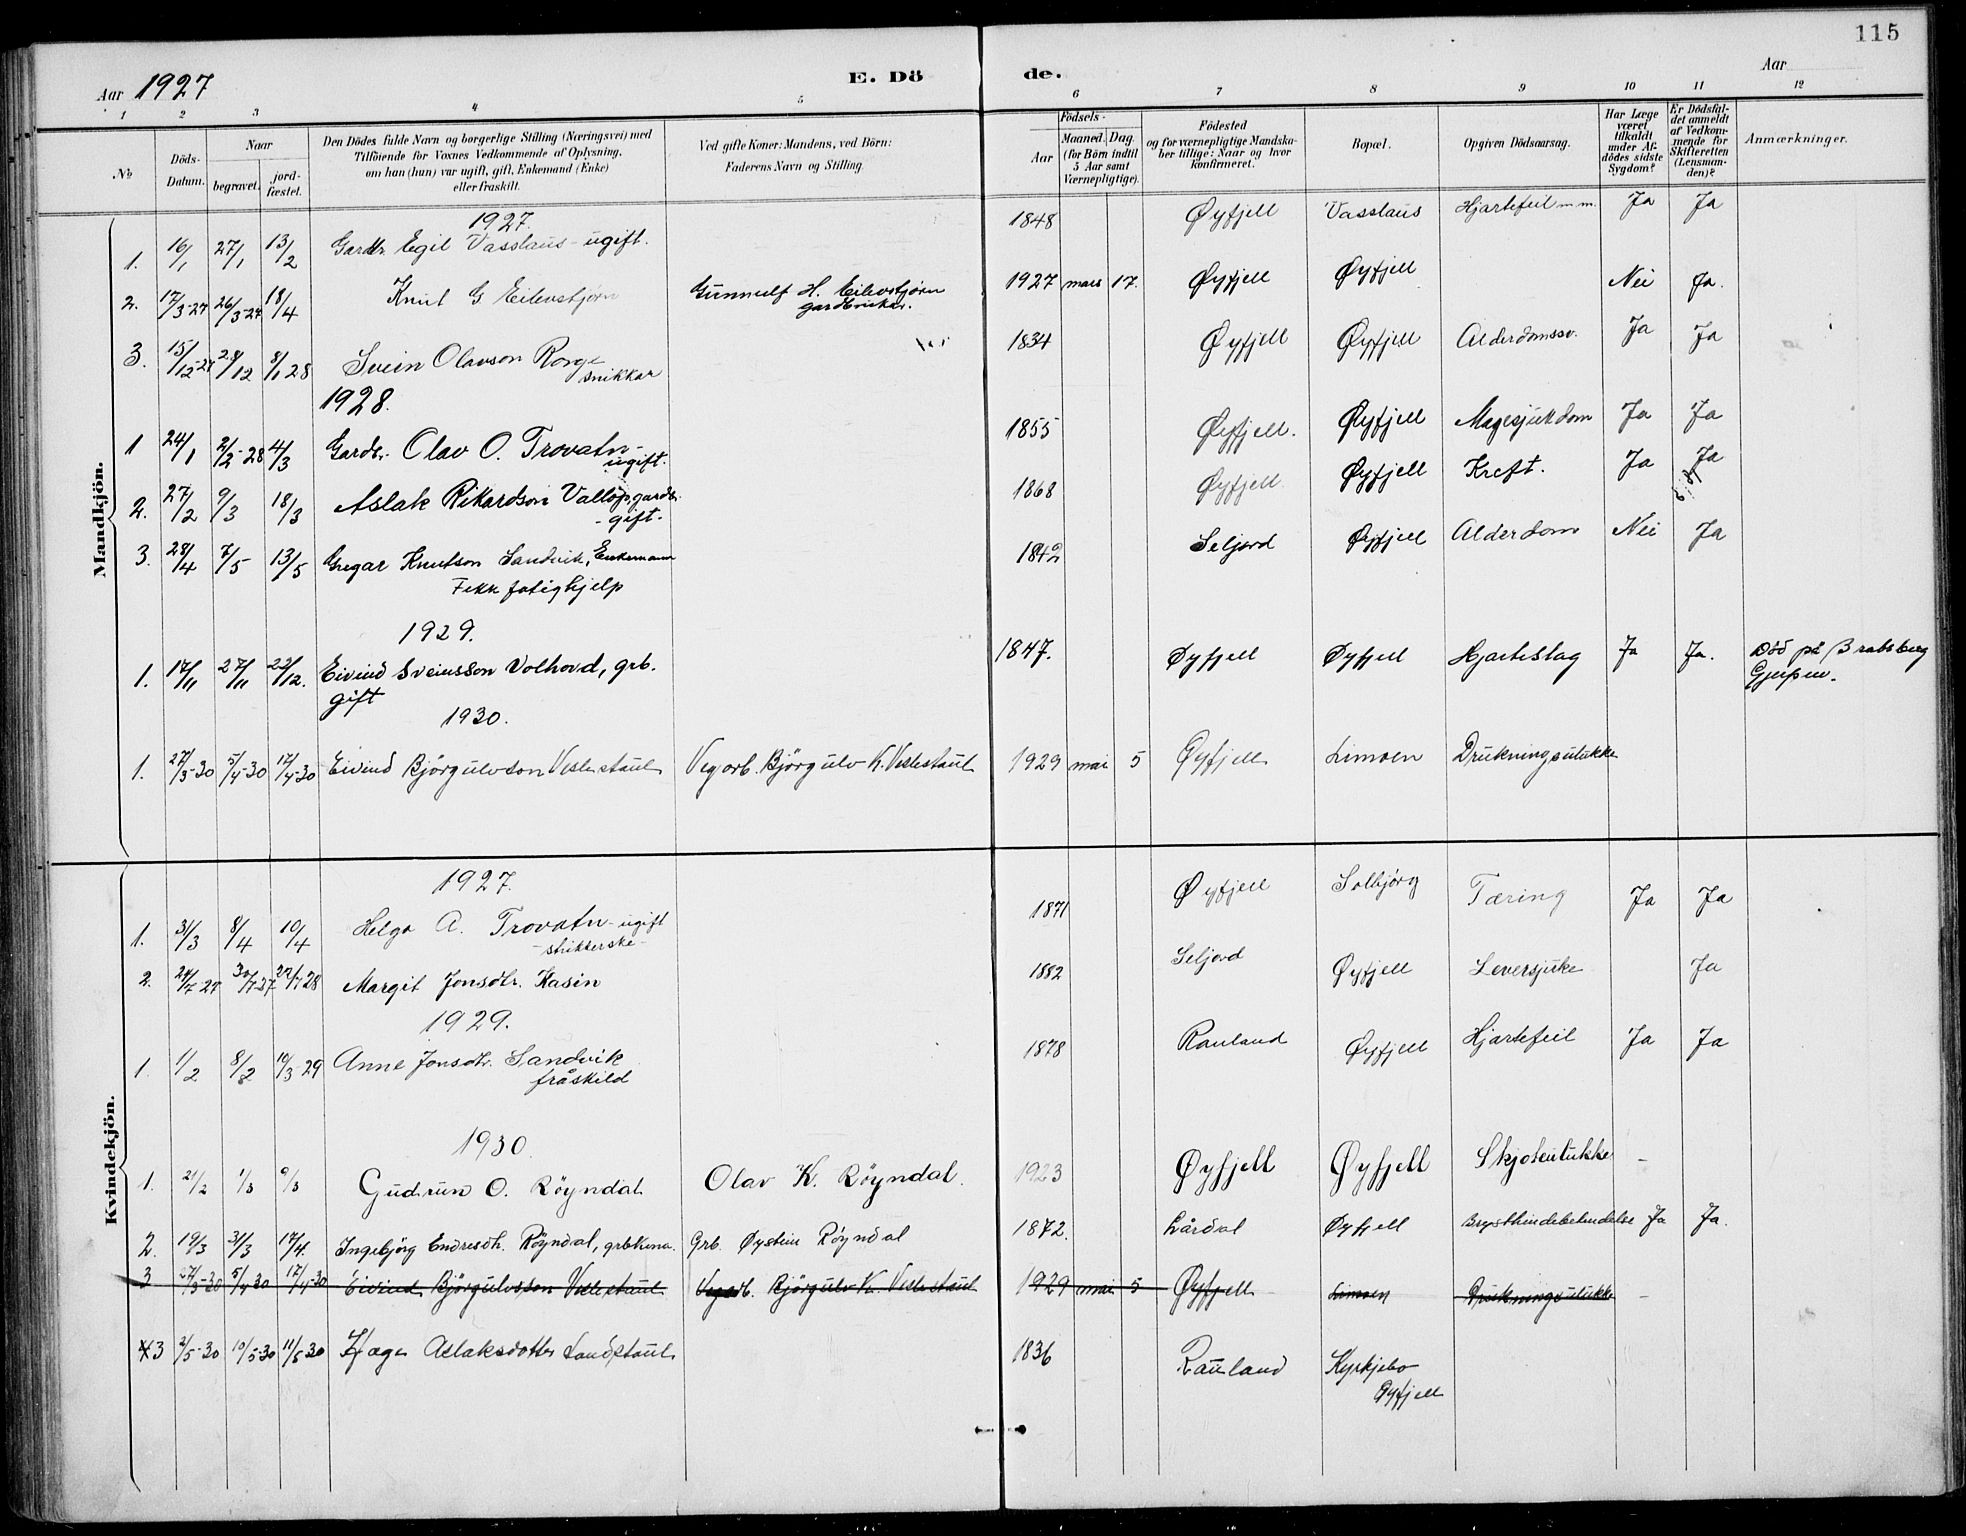 115
Aar 1927
E. Dö de.
Aar
1 2 3 4 5 6 7 8 9 10 11 12
No
Döds-Datum.
Naar
begravet.
jord-fæstet.
Den Dödes fulde Navn og borgerlige Stilling (Næringsvei) med
Tilföiende for Voxnes Vedkommende af Oplysning,
om han (hun) var ugift, gift, Enkemand (Enke)
eller fraskilt.
Ved gifte Koner: Mandens, ved Börn:
Faderens Navn og Stilling.
Födsels-
Aar
Maaned. Dag
(for Börn indtil
5 Aar samt
Værnepligtige).
Födested
og for værnepligtige Mandska-
ber tillige: Naar og hvor
konfirmeret.
Bopæl.
Opgiven Dödsaarsag.
Har Læge
været
tilkaldt
under Af-
dödes sidste
Sygdom?
Er Dödsfal-
det anmeldt
af Vedkom-
mende for
Skifteretten
(Lensman-
den)?
Anmærkninger.
Mandkjön.
1927.
1. 16/1 27/1 13/2 Gardbr. Egil Vasslaus - ugift. 1848 Øyfjell Vasslaus Hjartefeil m.m. Ja Ja
2. 17/3-27 26/3-27 18/4 Knut G Eilevstjønn Gunnulf H. Eilevstjønn 1927 mars 17. Øyfjell Øyfjell Nei Ja.
gardbrukar.
3. 15/12-27 28/12 8/1 28 Svein Olavson Ronge 1834 Øyfjell Øyfjell Alderdomssv. Ja Ja
snikkar
1928.
1 24/1 2/2-28 4/3 Gardbr. Olav O. Trovatn - 1855 Øyfjell. Øyfjell Magesjukdom Ja Ja
ugift.
2. 27/2 9/3 18/3 Aslak Rikardson Vallop, gardbr. 1868 Øyfjell Øyfjell Kreft. Ja Ja
- gift.
3. 28/4 7/5 13/5 Gregar Knutson Sandvik, Enkemann 1842 Seljord Øyfjell Alderdom Nei Ja
Fekk fatighjelp
1929.
1. 17/11 27/11 22/12. Eivind Sveinsson Volhovd, grb. 1847. Øyfjell Øyfjell Hjarteslag Ja Ja. Död på Bratsberg
gift Gjerpen.
1930.
1. 27/3-30 5/4-30 17/4-30 Eivind Björgulvson Veslestaul Vegarb. Björgulv K. Veslestaul 1929 mai 5 Øyfjell Limoen Drukningsulukke
Kvindekjön.
1927.
1. 31/3 8/4 10/4 Helga A. Trovatn - ugift 1871 Øyfjell Solbjörg Tæring Ja Ja
- strikkerske -
2. 24/7 27 30/7-27 22/1 28 Margit Jonsdtr. Kasin 1882 Seljord Øyfjell Leversjuke Ja
1929.
1. 1/2 8/2 10/3-29 Anne Jonsdtr. Sandvik 1878 Rauland Øyfjell Hjartefeil Ja Ja
fråskild
1930
1. 21/2 1/3 9/3 Gudrun O. Röyndal Olav K. Röyndal. 1923 Øyfjell Øyfjell Skjoteulukke -
2. 19/3 31/3 17/4. Ingebjörg Endresdtr. Röyndal, grbkona. Grb. Øystein Röyndal 1872. Lårdal Øyfjell Brysthindebetendelse Ja Ja.
3 27/3-30 5/4 30 17/4-30 Eivind Björgulvsson Veslestaul Vegarb. Björgulv K. Veslestaul 1929 mai 5 Øyfjell Limoen Drukningsulukke -
3 2/5-30 10/5-30 11/5-30 Hæge Aslaksdotter Sandstaul 1836 Rauland Kyrkjebo
Øyfjell